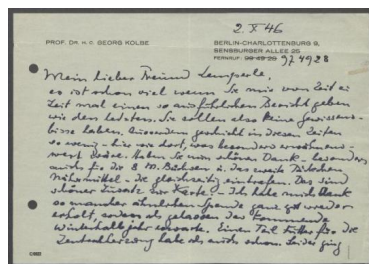 2. X. 46
PROF. DR. H. C. GEORG KOLBE
BERLIN-CHARLOTTENBURG 9,
SENSBURGER ALLEE 25
FERNRUF: 99 43 25 974928
Mein lieber Freund Lemperle.
es ist schon viel wenn Sie mir von Zeit zu
Zeit mal einen so ausführlichen Bericht geben
wie den letzten. Sie sollen also keine Gewissens-
bisse haben. Ausserdem geschieht in diesen Zeiten
so wenig - hier wie dort, was besonders erwähnens-
wert wäre. Haben Sie nun schönen Dank - besonders
auch für die 8 M. Büchsen u. das zweite Päckchen
Nährmittel - die gleichzeitig eintrafen. Das sind
schöner Zusatz zur Karte! - Ich habe mich dank
so mancher ähnlichen Spende ganz gut wieder
erholt, sodass ich gelassen das kommende
Winterhalbjahr erwarte. Einen Teil für die
Zentralheizung habe ich auch schon. Leider ging